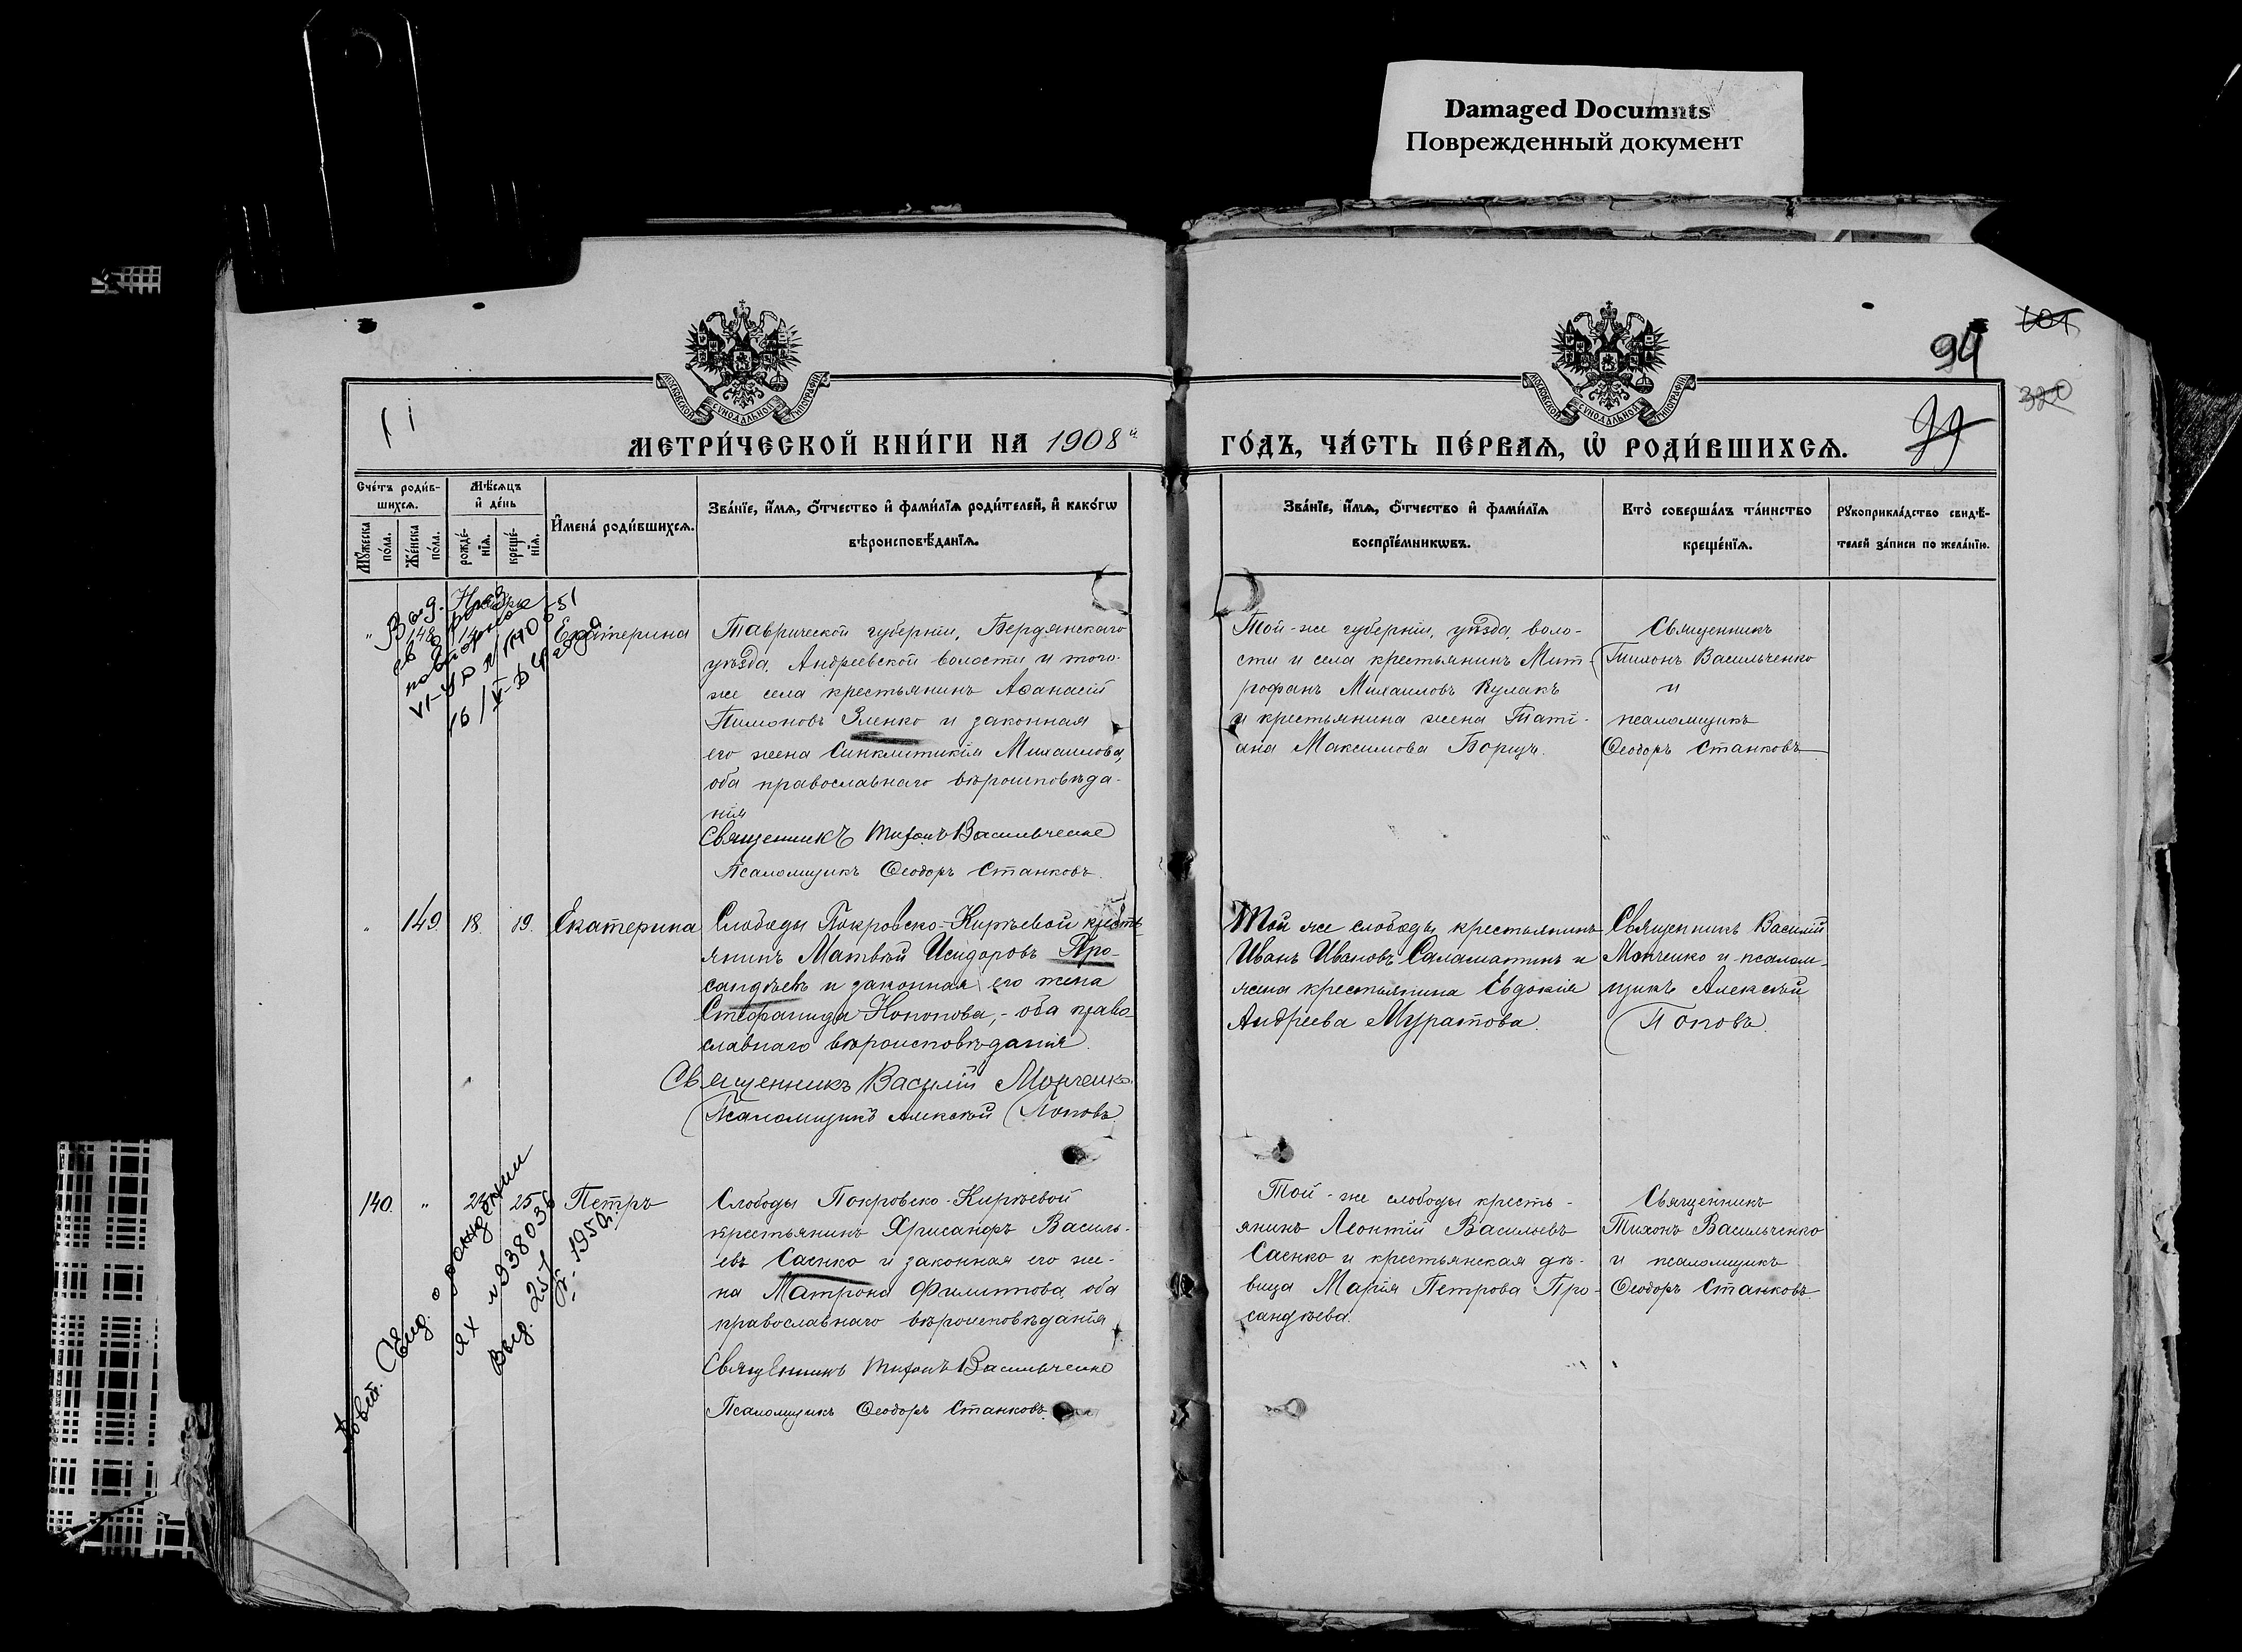 Damaged Documnts
Поврежденный документ
МОСКОВСКОЙ СѴНОДАЛЬНОЙ ТИПОГРАФІИ
МОСКОВСКОЙ СѴНОДАЛЬНОЙ ТИПОГРАФІИ
94
101
320
99
МЕТРИ́ЧЕСКОЙ КНИ́ГИ НА 1908й
ГО́ДЪ, ЧА́СТЬ ПЕ́РВАѦ, Ѡ҆ РОДИ́ВШИХСѦ.
Сче́тъ роди́в-
шихсѧ.
Мꙋ́жеска
по́ла.
Же́нска
по́ла.
Мѣ́сѧцъ
и҆ де́нь
рожде́-
нїѧ.
креще́-
нїѧ.
И҆мена̀ роди́вшихсѧ.
Зва́нїе, и҆́мѧ, о҆́тчество и҆ фами́лїѧ роди́телей, и҆ како́гѡ
вѣроисповѣ́данїѧ.
Зва́нїе, и҆́мѧ, о҆́тчество и҆ фами́лїѧ
воспрїе́мникѡвъ.
Кто̀ соверша́лъ та́инство
креще́нїѧ.
Рꙋкоприкла́дство свидѣ́-
телей за́писи по жела́нїю.
" 148 Екатерина
Таврической губерніи, Бердянскаго
уѣзда, Андреевской волости и того-
же села крестьянинъ Аѳанасій
Пимоновъ Зленко и законная
его жена Синклитикія Михаилова,
оба православнаго вѣроисповѣда-
нія
Священникъ Тихонъ Васильченко
Псаломщикъ Ѳеодоръ Станковъ.
Той-же губерніи, уѣзда, воло-
сти и села крестьянинъ Мит-
рофанъ Михаиловъ Кулакъ
и крестьянина жена Тати-
ана Максимова Борщъ.
Священникъ
Тихонъ Васильченко
и
псаломщикъ
Ѳеодоръ Станковъ
" 149. 18. 19. Екатерина
Слободы Покровско-Кирѣевой кресть-
янинъ Матвѣй Исидоровъ Про-
сандѣевъ и законная его жена
Стефанида Кононова,- оба право-
славнаго вѣроисповѣданія.
Священникъ Василій Монченко
Псаломщикъ Алексѣй Поповъ
Той же слободы крестьянинъ
Иванъ Ивановъ Саламатинъ и
жена крестьянина Евдокія
Андреева Муратова.
Священникъ Василій
Монченко и псалом-
щикъ Алексѣй
Поповъ.
140. " 25 Петръ
Слободы Покровско-Кирѣевой
крестьянинъ Хрисанфъ Василь-
евъ Саенко и законная его же-
на Матрона Филиппова, оба
православнаго вѣроисповѣданія
Священникъ Тихонъ Васильченко
Псаломщикъ Ѳеодоръ Станковъ.
Той-же слободы кресть-
янинъ Леонтій Васильевъ
Саенко и крестьянская дѣ-
вица Марія Петрова Про-
сандѣева.
Священникъ
Тихонъ Васильченко
и псаломщикъ
Ѳеодоръ Станковъ.
Свид. о рождении
ЯХ №938036
Выд. 25/
1950г.